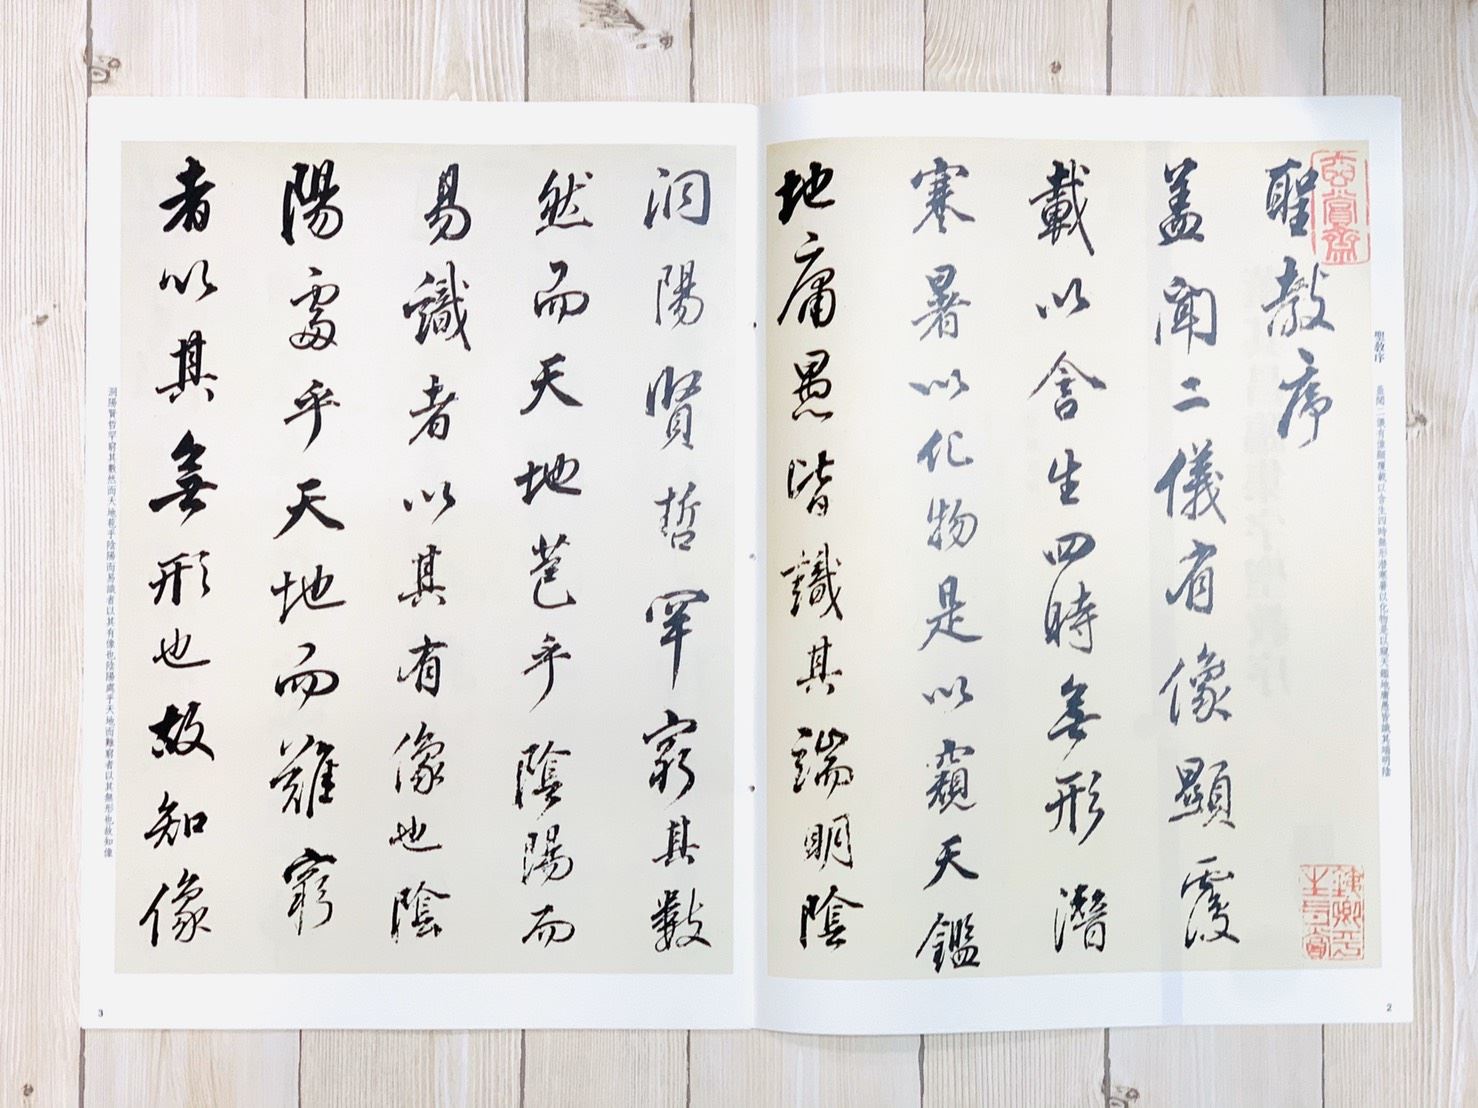 聖教序 蓋聞二儀有像顯覆載以含生四時無形潛寒暑以化物是以窺天鑑地庸愚皆識其端明陰
玄賞齋
聖教序
蓋聞二儀有像顯覆
載以含生四時無形潛
寒暑以化物是以窺天鑑
地庸愚皆識其端明陰
2
洞陽賢哲罕窮其數
然而天地苞乎陰陽而
易識者以其有像也陰
陽處乎天地而難窮
者以其無形也故知像
洞陽賢哲罕窮其數然而天地苞乎陰陽而易識者以其有像也陰陽處乎天地而難窮者以其無形也故知像
3